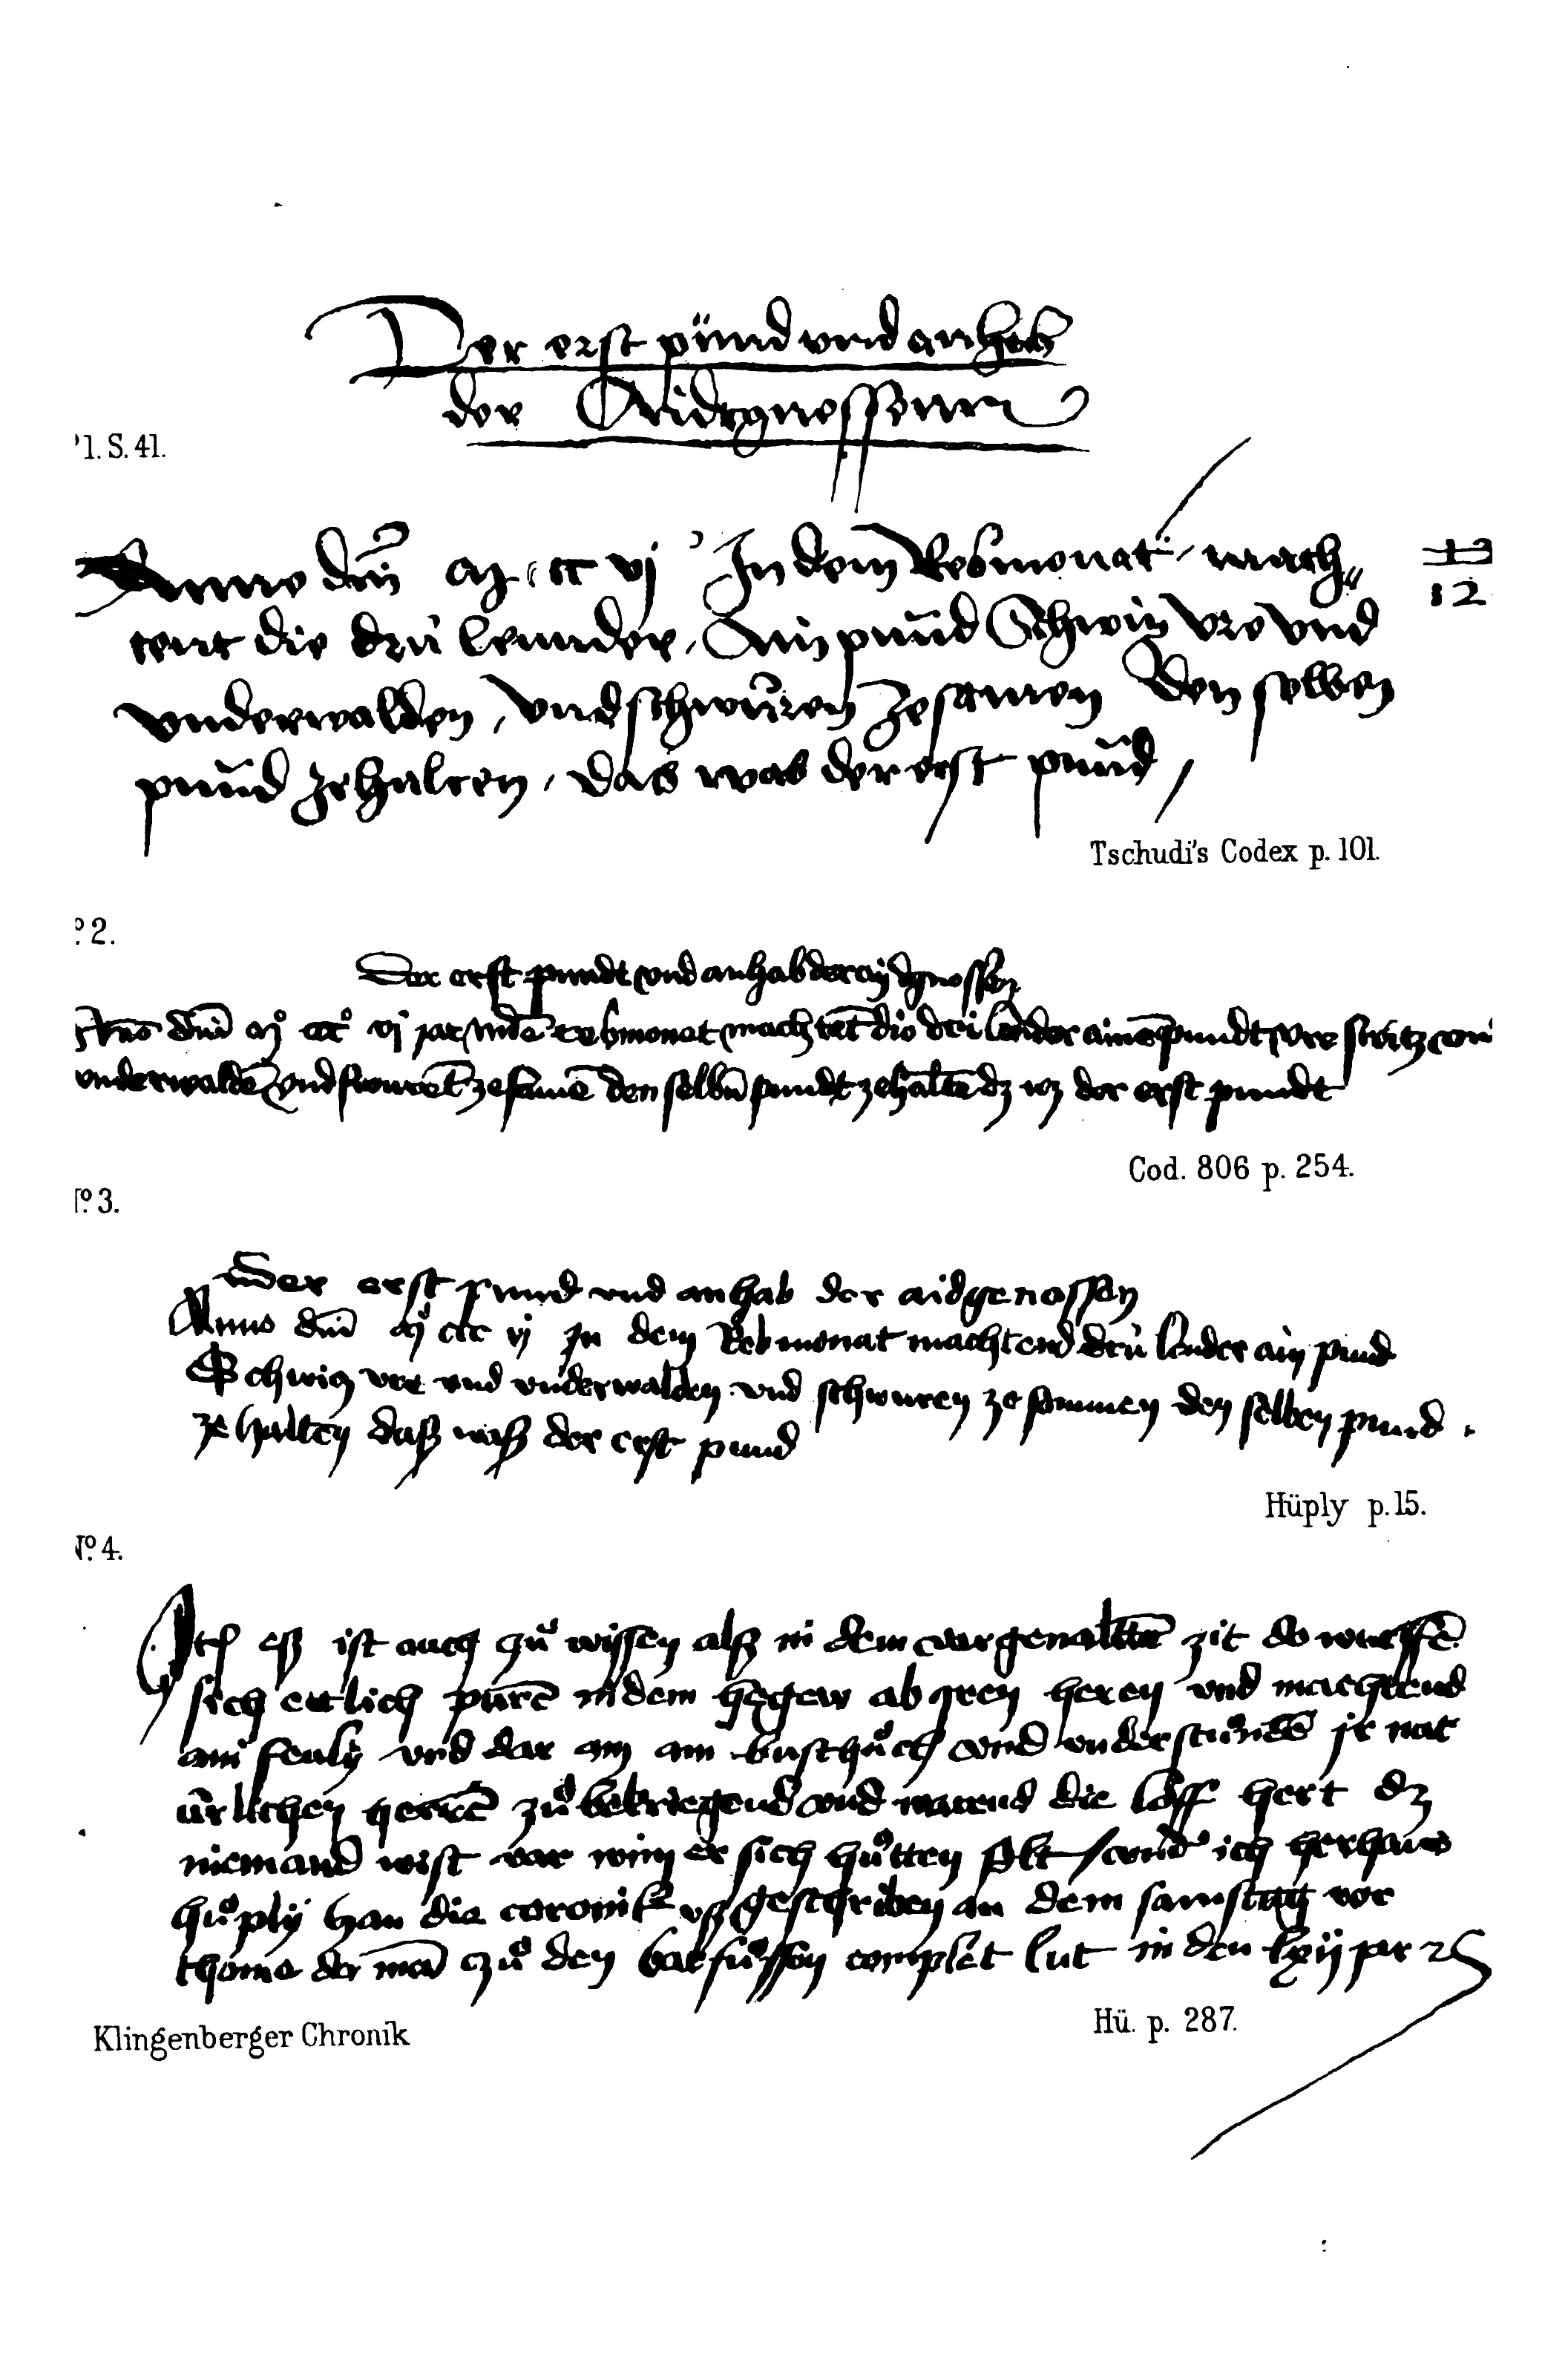 Der erst pünd vnd anhab
der Aidgnossenn
1. S. 41.
Anno dm̄ M ccc vj In dem Rebmonat mach„
tent die drü lennder, Ain pund Schwitz Vre vnd
vnderwalden, vnd schwuren zesamen Den selben
pund zehalten, das was der erst pund
12
Tschudi's Codex p. 101.
º 2.
Der erst pundt vnd anhab der aÿdgnossen
Ano dm̄ mº cccº vj jar in dē rebmonet machtēt die dri lender ainē pundt Vre switz vn
vnderwaldē vnd swurēt ze samē den selbn̄ pundt ze haltē dz wz der erst pundt
Cod. 806 p. 254.
º 3.
Der erst pund vnd anhab der aidgenossen
Anno dm̄ mº ccc vj jn dem Rebmonat machtend drü lender ain pund
Schwiz vre vnd vnderwalden vnd schwuren ze sammen den selben pund
ze halten daß waß der erst pund
Hüply p. 15.
Nº 4.
Itē eß ist auch zuͦ wissen alß in dem vorgenaltten zit do wurffē
sich ettlich purē in dem hegew ab iren heren vnd machtend
ain fenly vnd dar an ain buntschuͦch vnd vnderstuͦndē jr nat
ürlichen herrē zuͦ bekriegend vnd warend die löff hert dz
niemand wist var wim er sich huͦtten solt / vnd ich herhans
huͦply han die coronik vß geschriben an dem samstag vor
thome der mā zuͦ den barfuͦssen complet lut in den lxij jar
Klingenberger Chronik
Hü. p. 287.